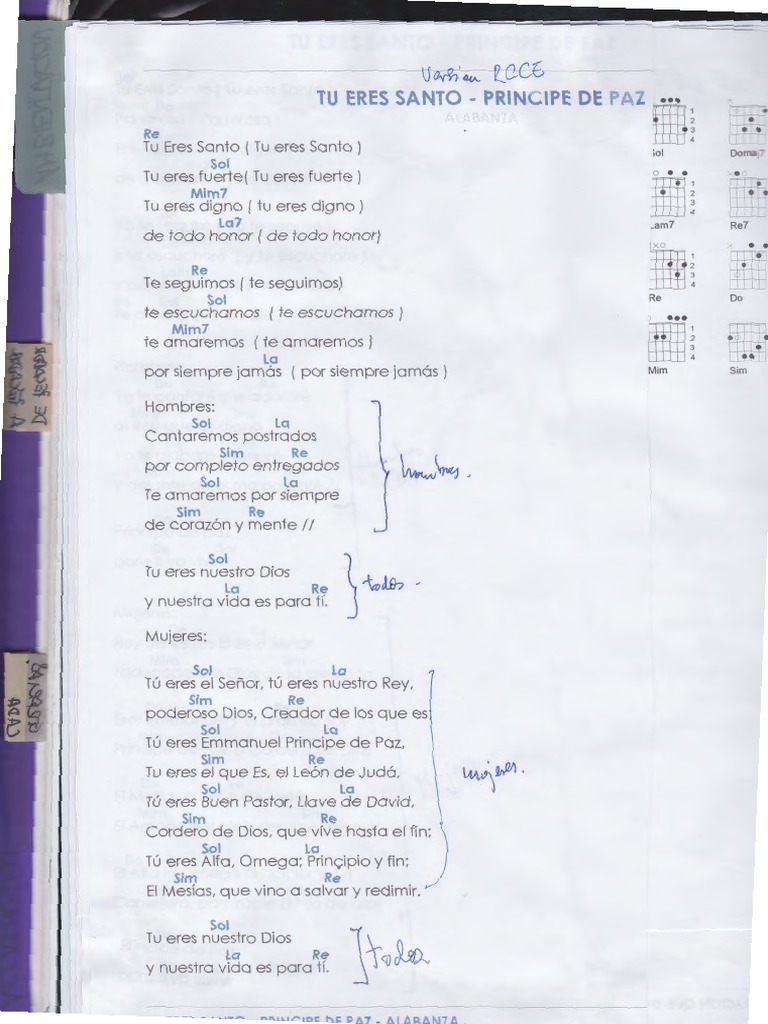 Version RCCE
TU ERES SANTO - PRINCIPE DE PAZ
ALABANZA
Re
Tu Eres Santo ( Tu eres Santo )
Sol
Tu eres fuerte( Tu eres fuerte )
Mim7
Tu eres digno ( tu eres digno )
La7
de todo honor ( de todo honor)
Re
Te seguimos ( te seguimos)
Sol
te escuchamos ( te escuchamos )
Mim7
te amaremos ( te amaremos )
La
por siempre jamás ( por siempre jamás )
Hombres:
Sol La
Cantaremos postrados
Sim Re
por completo entregados
Sol La
Te amaremos por siempre
Sim Re
de corazón y mente //
hombres.
Sol
Tu eres nuestro Dios
La Re
y nuestra vida es para tí.
todos -
Mujeres:
Sol La
Tú eres el Señor, tú eres nuestro Rey,
Sim Re
poderoso Dios, Creador de los que es;
Sol La
Tú eres Emmanuel Principe de Paz,
Sim Re
Tu eres el que Es, el León de Judá,
Sol La
Tú eres Buen Pastor, Llave de David,
Sim Re
Cordero de Dios, que víve hasta el fín;
Sol La
Tú eres Alfa, Omega; Prinçipio y fin;
Sim Re
El Mesías, que vino a salvar y redimir.
mujeres.
Sol
Tu eres nuestro Dios
La Re
y nuestra vida es para tí.
todos
ERES SANTO - PRINCIPE DE PAZ - ALABANZA
1
2
3
4
Sol Domaj7
1
2
3
4
Lam7 Re7
1
2
3
4
Re Do
1
2
3
4
Mim Sim